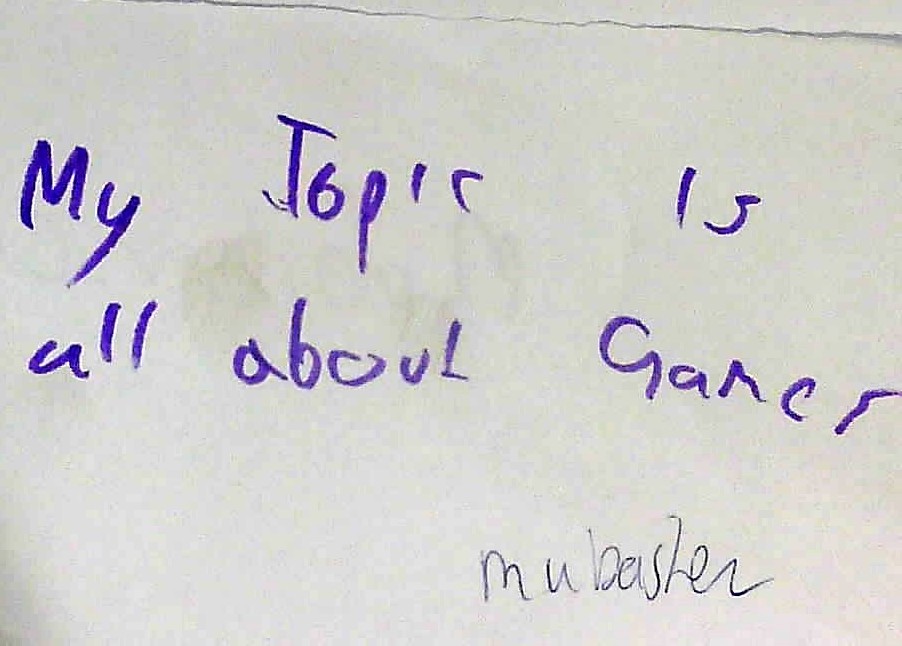 My Topic is
all about Games
mubasher